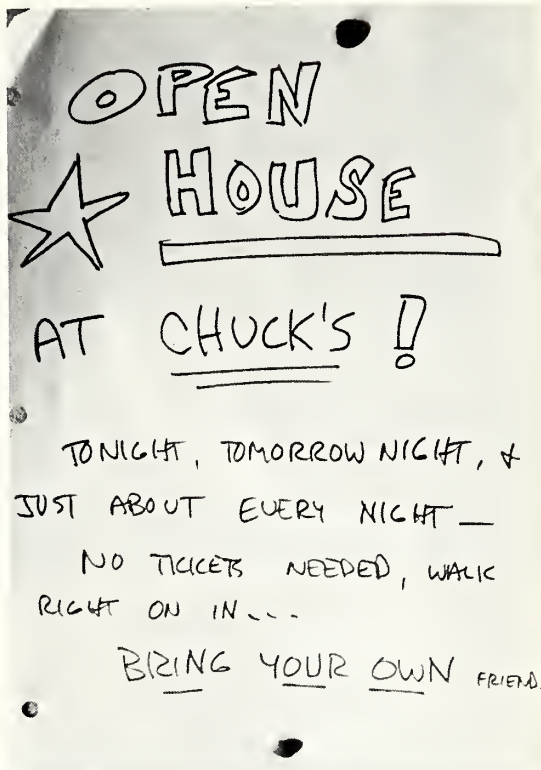 OPEN
HOUSE
AT CHUCK'S!
TONIGHT, TOMORROW NIGHT, &
JUST ABOUT EVERY NIGHT —
NO TICKETS NEEDED, WALK
RIGHT ON IN...
BRING YOUR OWN FRIEND.